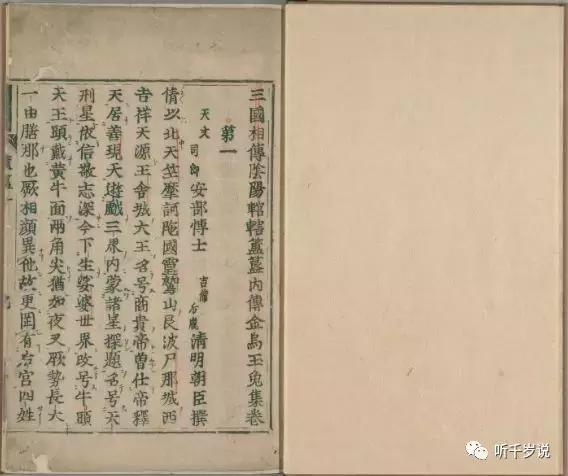 三國相傳陰陽輨轄簠簋內傳金烏玉兎集卷
第一
天文 司郎 安部博士 吉備 后胤 清明朝臣撰
倩以北天竺摩訶陁國靈鷲山艮波尸那城西
吉祥天源王舍城大王名号商貴帝曽仕帝釋
天居善現天遊戯三界内蒙諸星探題名号天
刑星依信敬志深今下生娑婆世界改号牛頭
天王頭戴黄牛面兩角尖猶如夜叉厥勢長大
一由膳那也厥相顔異他故更罔有后宮四姓
听千岁说